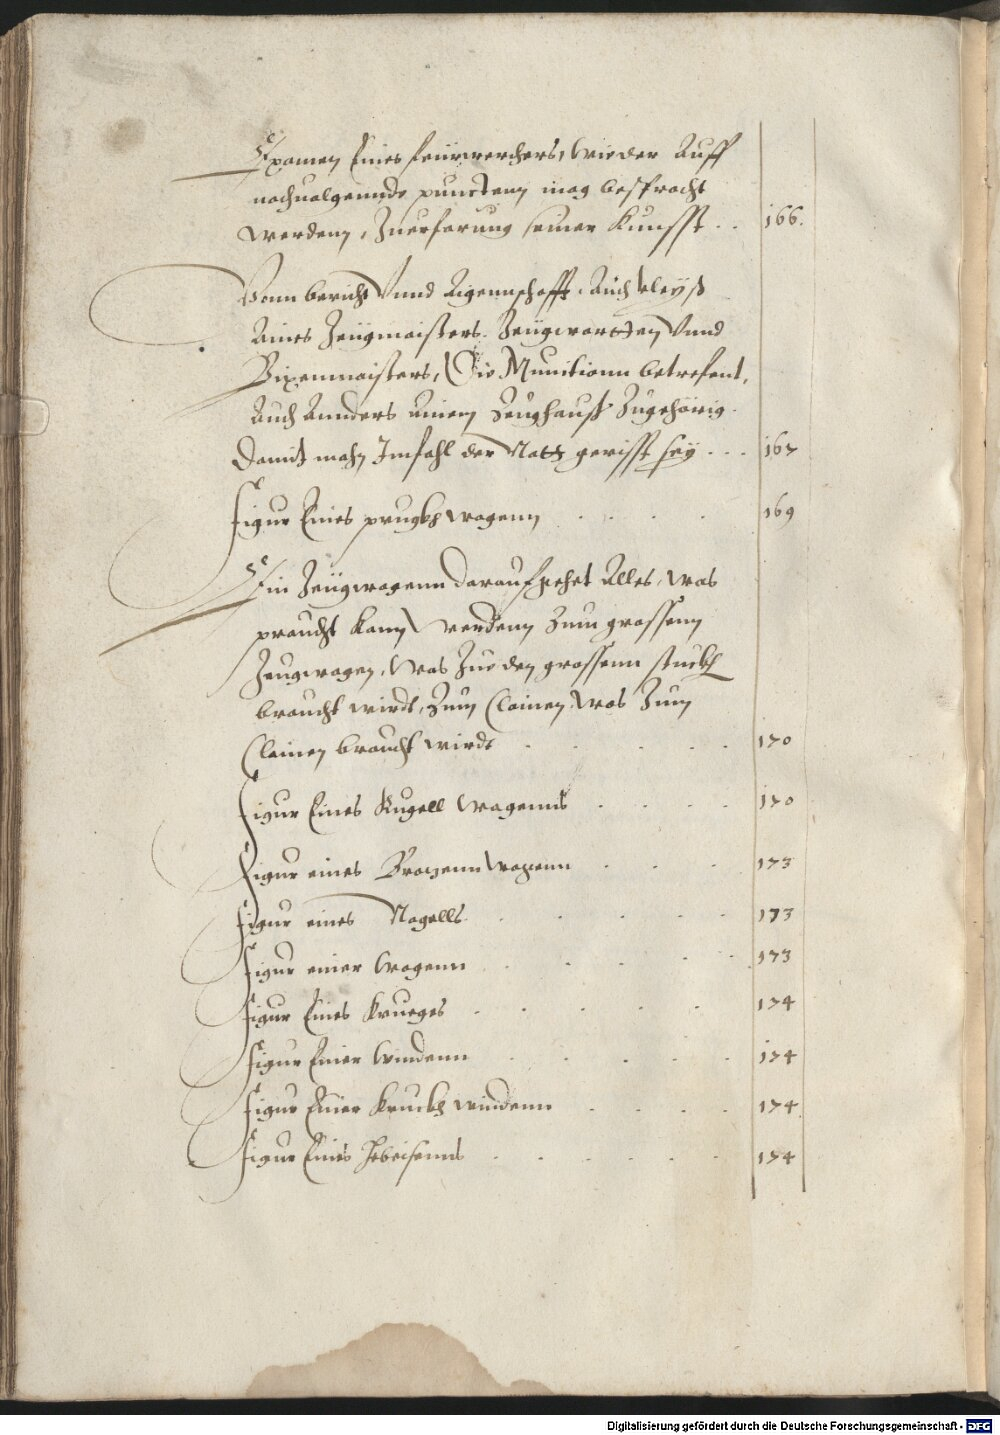 Examen Eines feürwerchers, wie der Auff
nachuolgennde puncten mag besprocht
werden, Zuerfarung seiner Kunsst . . 166.
Vonn bericht Vnnd Aigennschafft, Auch kleyß
Aines Zeügmaisters. Zeügwartten Vnnd
Bixenmaisters, Die Munitionn betrefent,
Auch Annders Ainem Zeughauß Zugehörig.
Damit mahn Imfahl der Nott gerisst sey . . . 167
Figur Eines prugkh wagenn . . . . 169
Ein Zeügwagenn darauf sehet Alles, was
praucht kann werdenn Zum grossenn
Zeugwagen, was Zue den grossenn stuckh
braucht wirdt, Zum Clainen was Zum
Clainen braucht wirdt . . . . . 170
Figur Eines Kugell Wagenns . . . . 170
Figur eines Wagenn . . . 173
Figur eines Nagells . . . . . 173
Figur einer Wagenn . . . . . 173
Figur Eines Krueges . . . . . 174
Figur Einer Windenn . . . . . 174
Figur Einer Kruckh windenn . . . . 174.
Figur Eines Hebeisenns . . . . . . 174
Digitalisierung gefördert durch die Deutsche Forschungsgemeinschaft - DFG